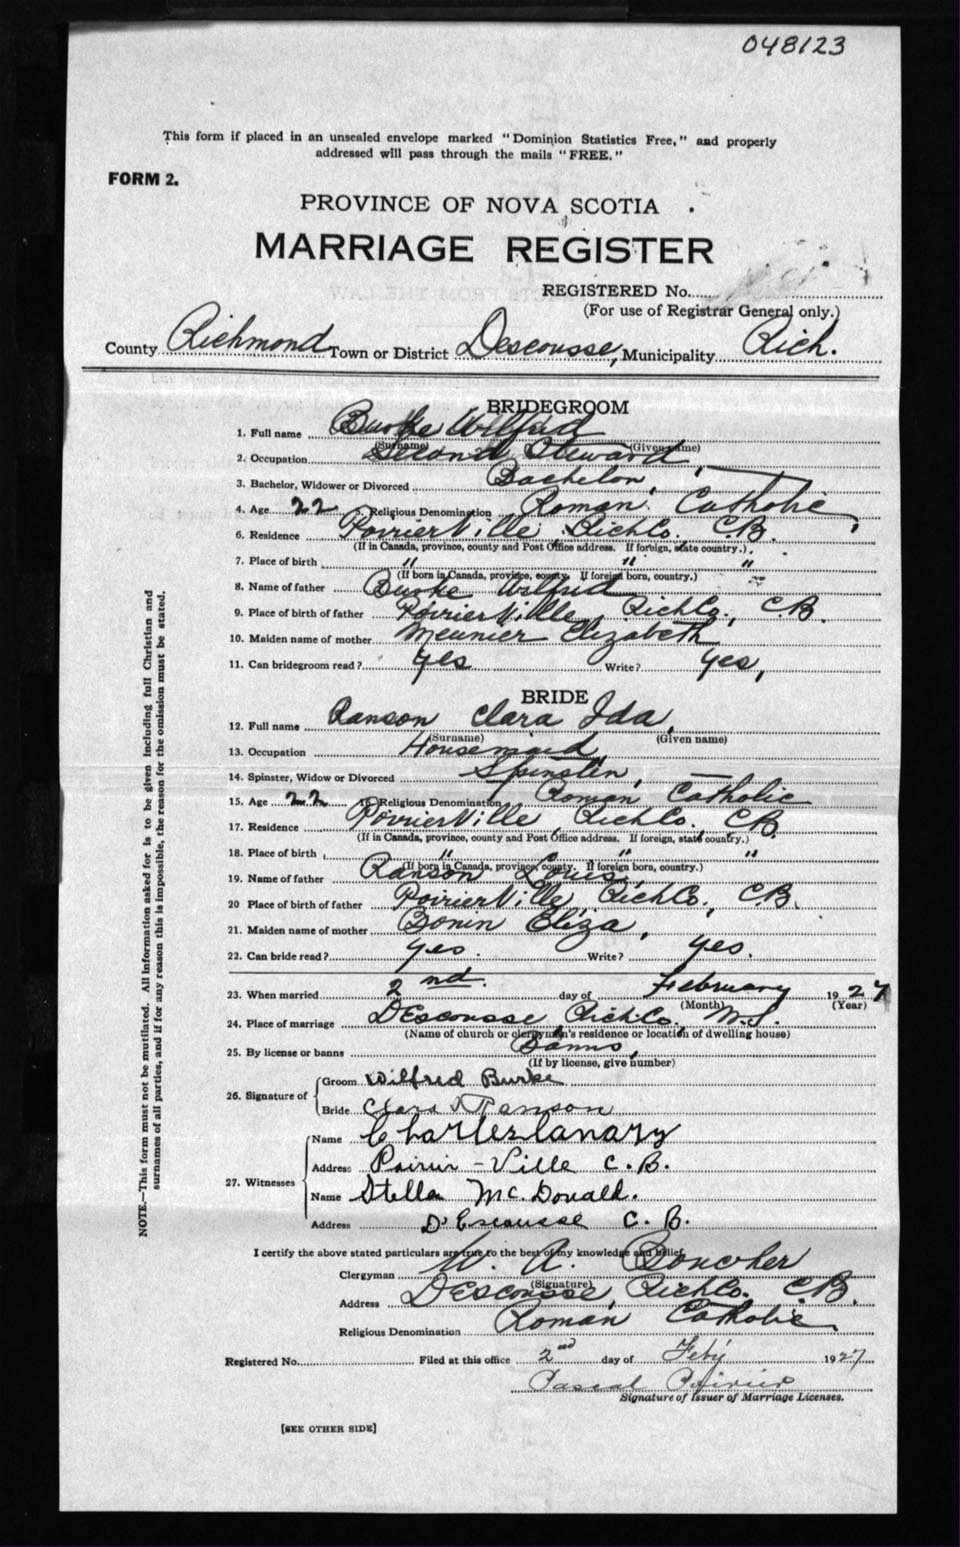 048123
This form if placed in an unsealed envelope marked "Dominion Statistics Free," and properly
addressed will pass through the mails "FREE."
FORM 2.
PROVINCE OF NOVA SCOTIA
MARRIAGE REGISTER
REGISTERED No.
(For use of Registrar General only.)
County Richmond Town or District Descousse, Municipality Rich.
BRIDEGROOM
1. Full name Burke Wilfred
(Surname) (Given name)
2. Occupation Second Steward
3. Bachelor, Widower or Divorced Bachelor,
4. Age 22 5. Religious Denomination Roman Catholic
6. Residence PoirierVille RichCo. C.B.
(If in Canada, province, county and Post Office address. If foreign, state country.)
7. Place of birth " " "
(If born in Canada, province, county. If foreign born, country.)
8. Name of father Burke Wilfred
9. Place of birth of father PoirierVille, RichCo., C.B.
10. Maiden name of mother Meunier Elizabeth
11. Can bridegroom read? Yes Write? Yes,
BRIDE
12. Full name Ranson Clara Ida,
(Surname) (Given name)
13. Occupation Housemaid,
14. Spinster, Widow or Divorced Spinster,
15. Age 22 16. Religious Denomination Roman Catholic
17. Residence PoirierVille, RichCo., C.B.
(If in Canada, province, county and Post Office address. If foreign, state country.)
18. Place of birth " " "
(If born in Canada, province, county. If foreign born, country.)
19. Name of father Ranson Louis,
20 Place of birth of father PoirierVille, RichCo., C.B.
21. Maiden name of mother Bonin Eliza,
22. Can bride read? Yes. Write? Yes.
23. When married 2nd. day of February 1927
(Month) (Year)
24. Place of marriage DEscousse, RichCo, N.S.
(Name of church or clergyman's residence or location of dwelling house)
25. By license or banns Banns,
(If by license, give number)
26. Signature of
Groom Wilfred Burke
Bride Clara Ranson
27. Witnesses
Name Charles Lanary
Address Poirier-Ville C.B.
Name Stella McDonald.
Address D'Escousse C.B.
I certify the above stated particulars are true to the best of my knowledge and belief.
Clergyman W. A. Boucher
(Signature)
Address DEscousse, RichCo. C.B.
Religious Denomination Roman Catholic.
Registered No. Filed at this office 2nd day of Feby 1927
Pascal Poirier
Signature of Issuer of Marriage Licenses.
[SEE OTHER SIDE]
NOTE.—This form must not be mutilated. All information asked for is to be given including full Christian and
surnames of all parties, and if for any reason this is impossible, the reason for the omission must be stated.